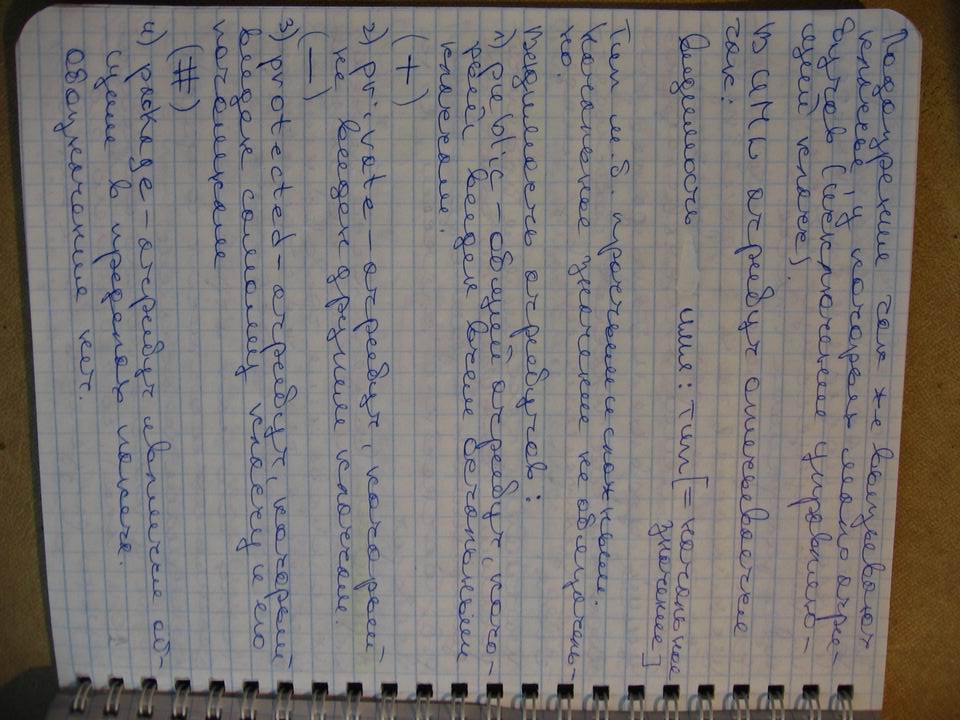 Подозрение так же вызывают
классы, у которых мало атри-
бутов (исключение управляю-
щий класс).
В UML атрибут описывается
так:
Видимость имя: тип [= начальное
значение]
Тип м.б. простым и сложным.
Начальное значение не обязатель-
но.
Видимость атрибутов:
1) public – общий атрибут, кото-
рый виден всем остальным
классам.
(+)
2) private – атрибут, который
не виден другим классам.
(—)
3) protected – атрибут, который
виден самому классу и его
потомкам
(#)
4) package – атрибут является об-
щим в пределах пакета.
обозначения нет.